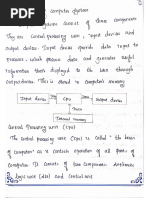 computer system
computer system consist of three components
They are Central processing unit, Input devices and
output devices. Input devices provide data input to
processor, which process data and generates useful
Information that's displayed to the user through
output devices. This is stored in computer's memory.
Input devices
CPU
Output device
Internal memory
Central Processing unit (CPU)
The central processing unit (CPU) is called "the brain
of computer" as it controls operation of all parts of
computer. It consists of two components Arithmetic
Logic unit (ALU) and Control unit